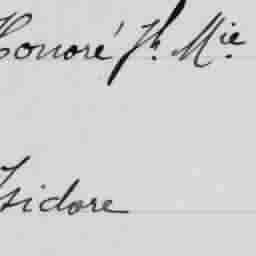 Honoré Jh. Mie.
Isidore